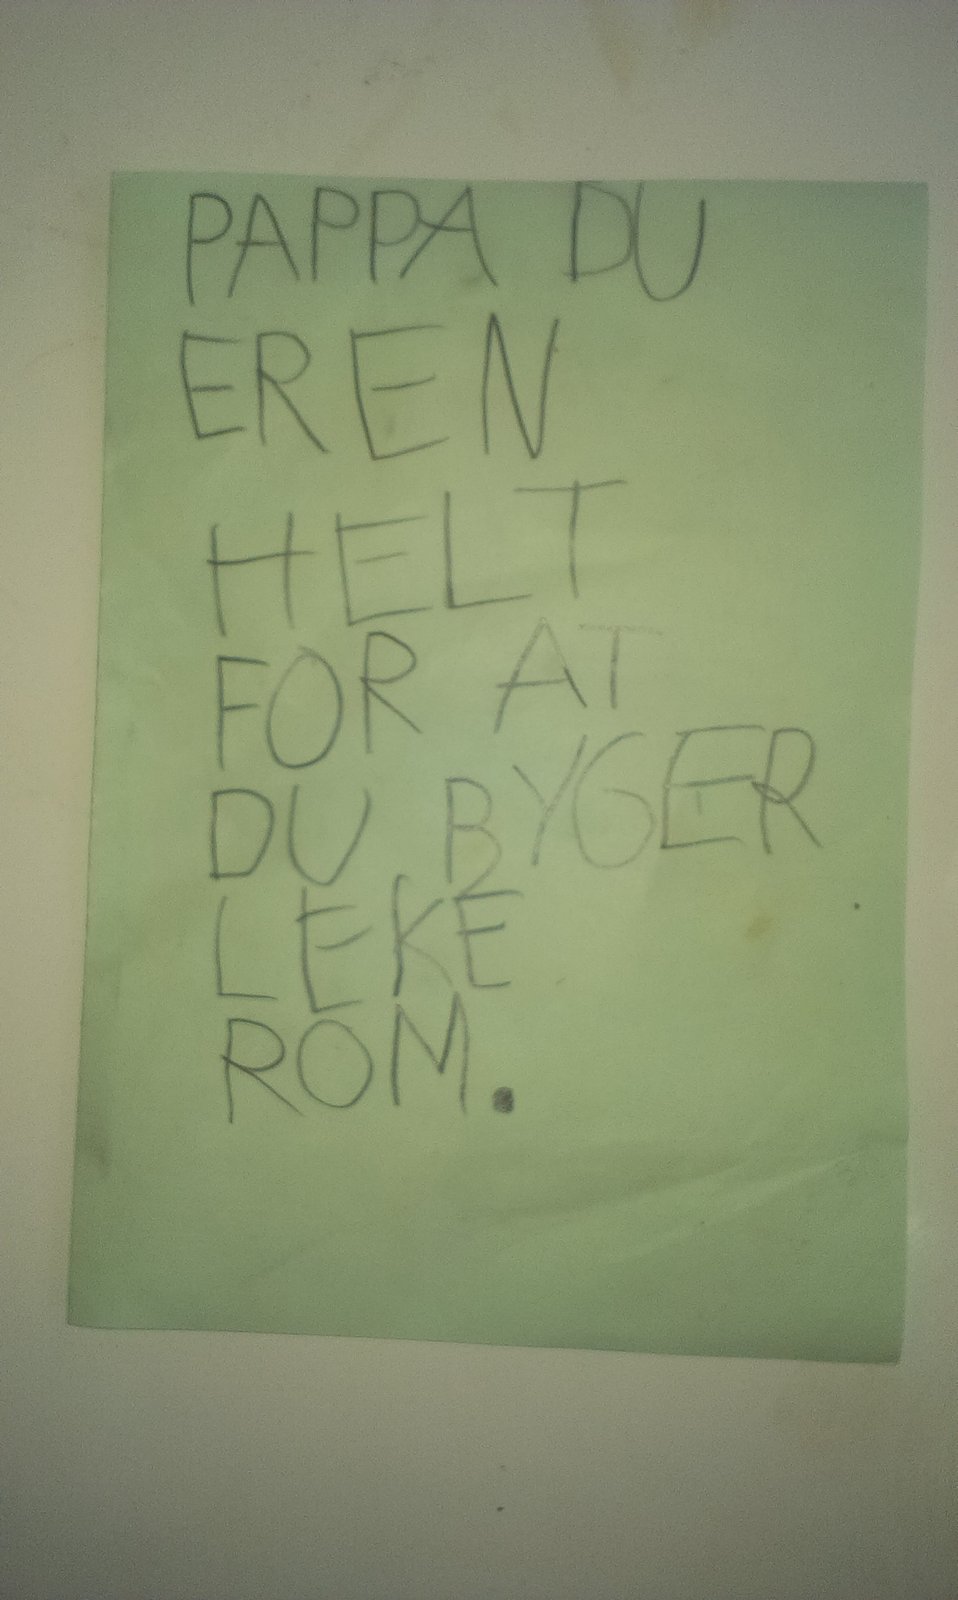 PAPPA DU
ER EN
HELT
FOR AT
DU BYGER
LEKE
ROM.